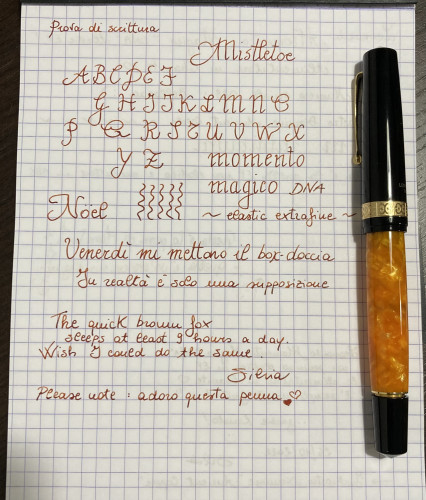 Prova di scrittura
Mistletoe
A B C D E F
G H I J K L M N O
P Q R S T U V W X
Y Z momento
magico DNA
Nöel
~ elastic extrafine ~
Venerdì mi mettono il box-doccia
In realtà è solo una supposizione
The quick brown fox
sleeps at least 9 hours a day.
Wish I could do the same.
Silvia
Please note : adoro questa penna ♥♡